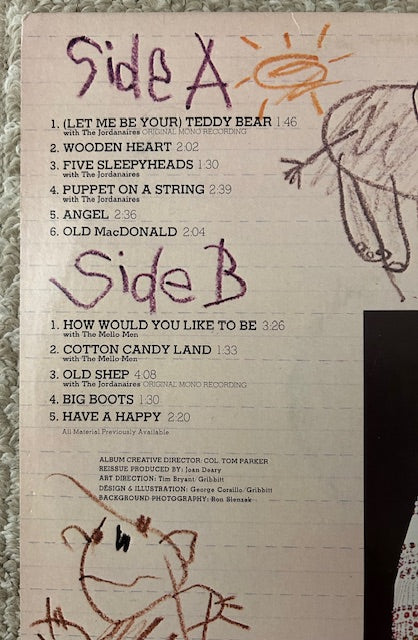 Side A
1. (LET ME BE YOUR) TEDDY BEAR 1:46
with The Jordanaires ORIGINAL MONO RECORDING
2. WOODEN HEART 2:02
3. FIVE SLEEPYHEADS 1:30
with The Jordanaires
4. PUPPET ON A STRING 2:39
with The Jordanaires
5. ANGEL 2:36
6. OLD MacDONALD 2:04
Side B
1. HOW WOULD YOU LIKE TO BE 3:26
with The Mello Men
2. COTTON CANDY LAND 1:33
with The Mello Men
3. OLD SHEP 4:08
with The Jordanaires ORIGINAL MONO RECORDING
4. BIG BOOTS 1:30
5. HAVE A HAPPY 2:20
All Material Previously Available.
ALBUM CREATIVE DIRECTOR: COL. TOM PARKER
REISSUE PRODUCED BY: Joan Deary
ART DIRECTION: Tim Bryant/Gribbitt
DESIGN & ILLUSTRATION: George Corsillo/Gribbitt
BACKGROUND PHOTOGRAPHY: Ron Slenzak